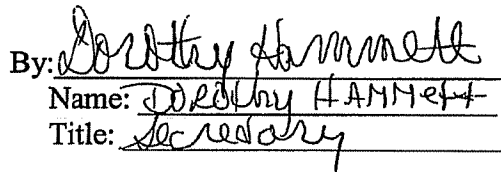 By: Dorothy Hammett
Name: Dorothy HAMMett
Title: Secretary